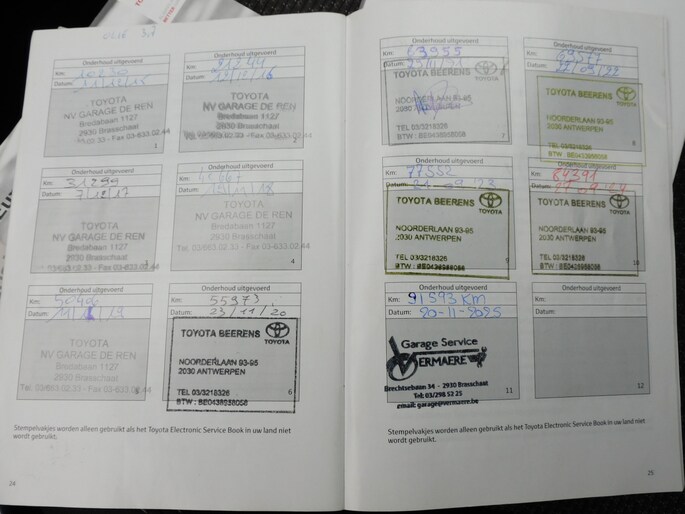 Onderhoud uitgevoerd
Km: 10250
Datum: 21/12/15
TOYOTA
NV GARAGE DE REN
Bredabaan 1127
2930 Brasschaat
Tel. 03/663.02.33 - Fax 03-633.02.44
1
Onderhoud uitgevoerd
Km: 21244
Datum: /12/16
TOYOTA
NV GARAGE DE REN
Bredabaan 1127
2930 Brasschaat
2
Onderhoud uitgevoerd
Km: 31299
Datum: 7/12/17
TOYOTA
NV GARAGE DE REN
Bredabaan 1127
2930 Brasschaat
Tel. 03/663.02.33 - Fax 03-633.02.44
3
Onderhoud uitgevoerd
Km:
Datum: 19/11/18
TOYOTA
NV GARAGE DE REN
Bredabaan 1127
2930 Brasschaat
Tel. 03/663.02.33 - Fax 03-633.02.44
4
Onderhoud uitgevoerd
Km:
Datum:
TOYOTA
NV GARAGE DE REN
Bredabaan 1127
2930 Brasschaat
Onderhoud uitgevoerd
Km: 55973
Datum: 23/11/20
TOYOTA BEERENS
TOYOTA
NOORDERLAAN 93-95
2030 ANTWERPEN
TEL 03/3218326
BTW : BE0436958056
6
Stempelvakjes worden alleen gebruikt als het Toyota Electronic Service Book in uw land niet
wordt gebruikt.
24
Onderhoud uitgevoerd
Km: 63955
Datum:
TOYOTA BEERENS
TOYOTA
NOORDERLAAN 93-95
2030 ANTWERPEN
TEL 03/3218326
BTW : BE0436958056
7
Onderhoud uitgevoerd
Km:
Datum:
TOYOTA BEERENS
TOYOTA
NOORDERLAAN 93-95
2030 ANTWERPEN
TEL 03/3218326
BTW : BE0436958056
8
Onderhoud uitgevoerd
Km: 77552
Datum: 21-09/23
TOYOTA BEERENS
TOYOTA
NOORDERLAAN 93-95
2030 ANTWERPEN
TEL 03/3218326
BTW : BE0436958056
9
Onderhoud uitgevoerd
Km: 84391
Datum:
TOYOTA BEERENS
TOYOTA
NOORDERLAAN 93-95
2030 ANTWERPEN
TEL 03/3218326
BTW : BE0436958056
10
Onderhoud uitgevoerd
Km: 91593 KM
Datum: 20-11-2025
Garage Service
VERMAERE
Brechtsebaan 34 - 2930 Brasschaat
Tel: 03/298 53 25
email: garage@vermaere.be
11
Onderhoud uitgevoerd
Km:
Datum:
12
Stempelvakjes worden alleen gebruikt als het Toyota Electronic Service Book in uw land niet
wordt gebruikt.
25